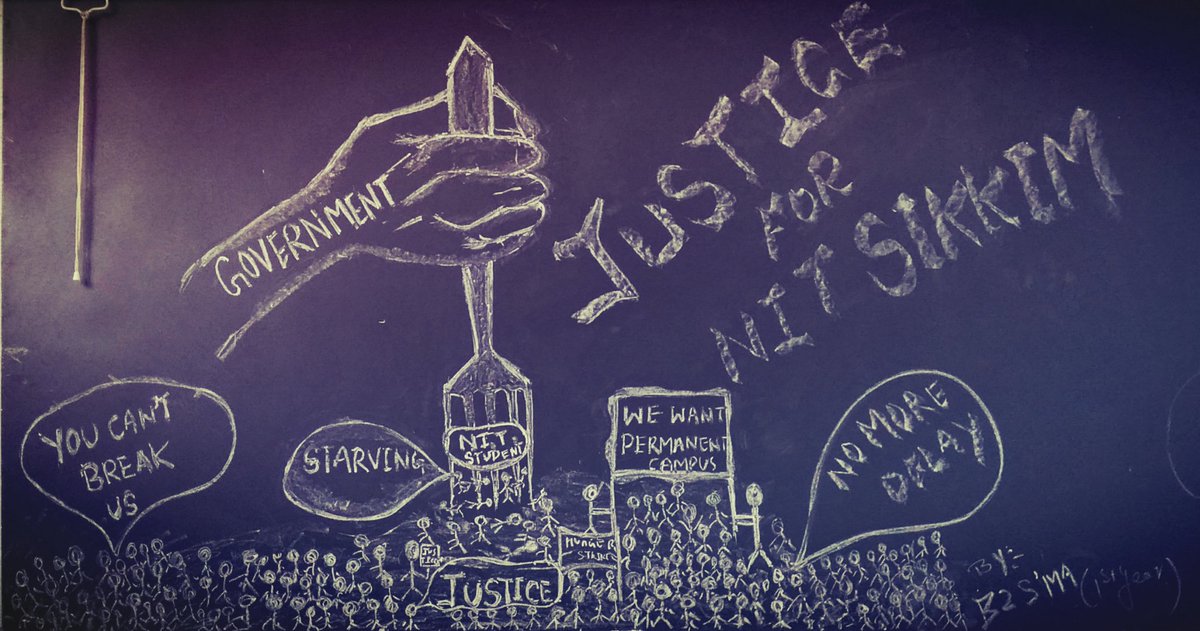 JUSTICE
FOR
NIT SIKKIM
GOVERNMENT
YOU CAN'T
BREAK
US
STARVING
N.I.T
STUDENT
WE WANT
PERMANENT
CAMPUS
NO MORE
DELAY
HUNGER
JUSTICE
BY:-
B2 S'MA (1st year)